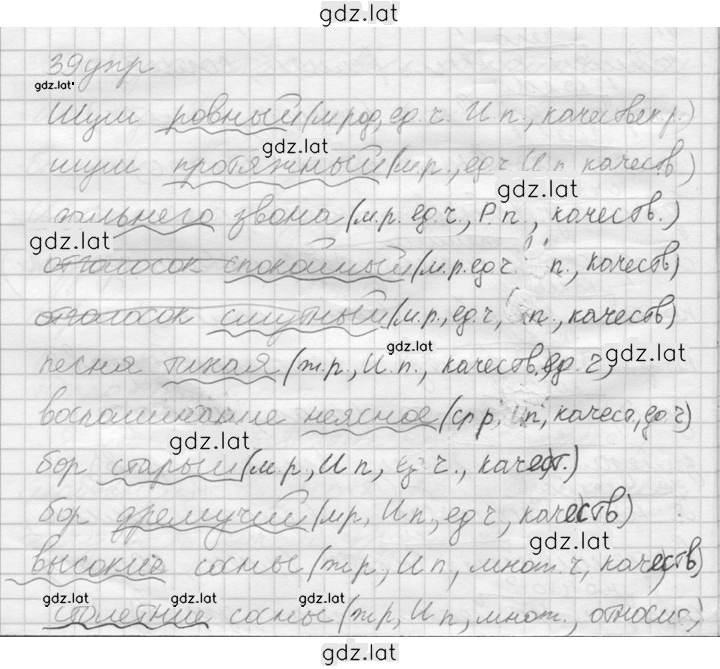 gdz.lat
39упр
gdz.lat
Шум ровный (м.род, ед.ч. И п., качествен р.)
gdz.lat
шум протяжный (м.р., ед ч И п качеств)
gdz.lat
дальнего звона (м.р. ед.ч., Р. п., качеств.)
gdz.lat
отголосок спокойный (м.р ед ч п., качеств)
отголосок смутный (м.р., ед.ч, п., качеств)
gdz.lat
песня тихая (ж.р., И.п., качеств., ед. ч,
gdz.lat
воспоминание неясное (ср р, Ип, качест, ед ч)
gdz.lat
бор старый (м.р, И п, ед ч., качест.)
бор дремучий (мр, И п, ед ч, качеств)
gdz.lat
высокие сосны (ж р, И п, множ. ч, качеств)
gdz.lat gdz.lat gdz.lat gdz.lat
столетние сосны (ж р, И п, множ., относ
gdz.lat